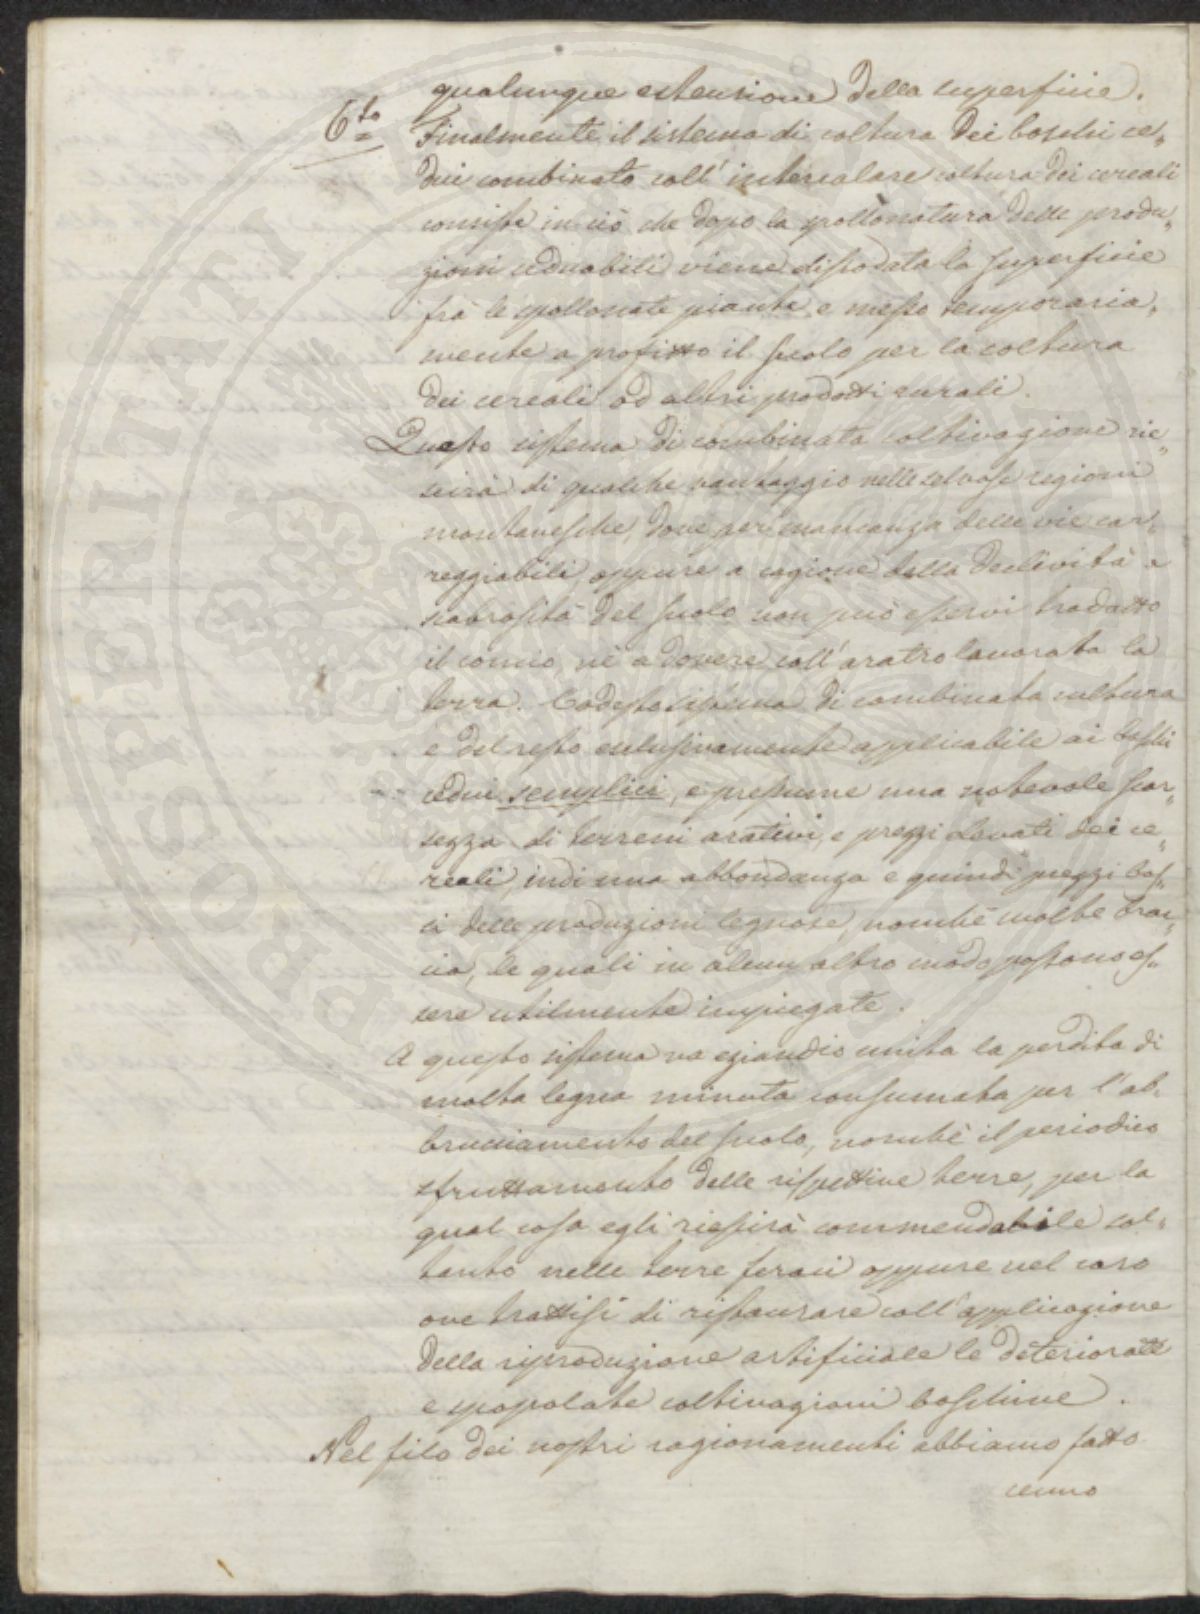 qualunque estensione della superficie.
6to Finalmente il sistema di coltura dei boschi ce„
dui combinato coll' intercalare coltura dei cereali
consiste in ciò che dopo la spollonatura delle produ„
zioni ceduabili viene dissodata la superficie
frà le spollonate piante, e messo temporaria„
mente a profitto il suolo per la coltura
dei cereali od altri prodotti rurali.
Questo sistema di combinata coltivazione rie„
scirà di qualche vantaggio nelle selvose regioni
montanesche, dove per mancanza delle vie car„
reggiabili, oppure a cagione della declività e
scabrosità del suolo non può esservi tradotto
il concio, nè a dovere coll' aratro lavorata la
terra. Codesto sistema di combinata cultura
e del resto esclusivamente applicabile ai boschi
cedui semplici, e presume una notevole scar„
sezza di terreni arativi, e prezzi elevati dei ce„
reali, indi una abbondanza e quindi prezzi bas„
si delle produzioni legnose, nonchè molte brac„
cia, le quali in alcun altro modo possono es„
sere utilmente impiegate.
A questo sistema va eziandio unita la perdita di
molta legna minuta consumata per l'ab„
bruciamento del suolo, nonchè il periodico
sfruttamento delle rispettive terre, per la
qual cosa egli riescirà commendabile sol„
tanto nelle terre feraci oppure nel caso
ove trattisi di ristaurare coll' applicazione
della riproduzione artificiale le deteriorate
e spopolate coltivazioni boschive.
Nel filo dei nostri ragionamenti abbiamo fatto
cenno
PROSPERITATI